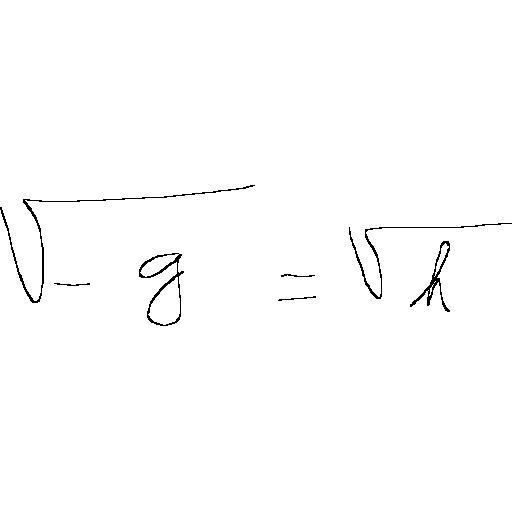 \sqrt{-g} = \sqrt{h}